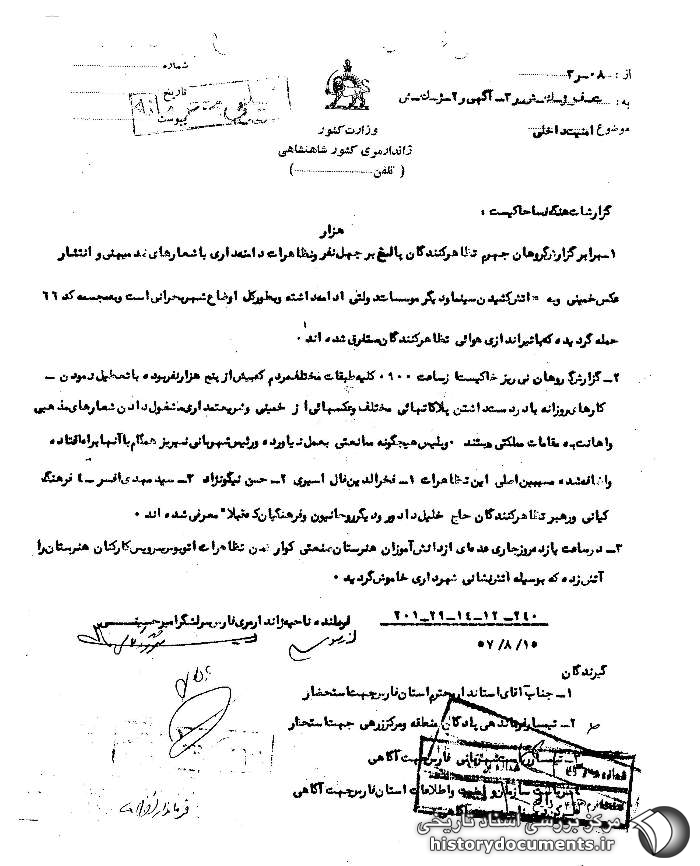 از : ۰۸-ر۳
شماره
به:
تاریخ
موضوع امنیت داخلی
پیوست
وزارت کشور
ژاندارمری کشور شاهنشاهی
( تلفن )
گزارشات هنگ فسا حاکیست :
هزار
۱- برابر گزارش گروهان جهرم تظاهرکنندگان بالغ بر چهل نفر و تظاهرات دامنه داری با شعارهای ضد میهنی و انتشار
عکس خمینی و به آتش کشیدن سینما و دیگر موسسات دولتی ادامه داشته و بطور کل اوضاع شهر بحرانی است و به مجسمه که ۶۶
حمله گردیده که با تیراندازی هوائی تظاهرکنندگان متفرق شده اند .
۲- گزارش گروهان نی ریز حاکیست از ساعت ۰۹۰۰ کلیه طبقات مختلف مردم که بیش از پنج هزار نفر بوده با تعطیل نمودن -
کارهای روزانه با در دست داشتن پلاکاتهای مختلف و عکسهائی از خمینی و شریعتمداری مشغول دادن شعارهای مذهبی
و اهانت به مقامات مملکتی هستند . و پلیس هیچگونه ممانعتی بعمل نیاورده و رئیس شهربانی نیریز همگام با آنها براه افتاده
و اضافه شده مسببین اصلی این تظاهرات ۱- فخرالدین فال اسیری ۲- حسن نیکونژاد ۳- سید مهدی افسر ۴- فرهنگ
کیانی و رهبر تظاهرکنندگان حاج خلیل دادور و دیگر روحانیون و فرهنگیان که قبلا" معرفی شده اند .
۳- در ساعت یازده روز جاری عده ای از دانش آموزان هنرستان صنعتی کوار ضمن تظاهرات اتوبوس سرویس کارکنان هنرستان را
آتش زده که بوسیله آتش نشانی شهرداری خاموش گردید .
۲۴۰-۱۲-۱۴-۲۹-۲۰۱
فرمانده ناحیه ژاندارمری فارس سرلشگر امیر حسینی
۵۷/۸/۱۵
گیرندگان
۱- جناب آقای استاندار محترم استان فارس جهت استحضار
۲- تیمسار فرماندهی پادگان منطقه و مرکز زرهی جهت استحضار
۳- تیمسار ریاست شهربانی فارس جهت آگاهی
ریاست سازمان و امنیت و اطلاعات استان فارس جهت آگاهی
جهت آگاهی
مرکز بررسی اسناد تاریخی
historydocuments.ir